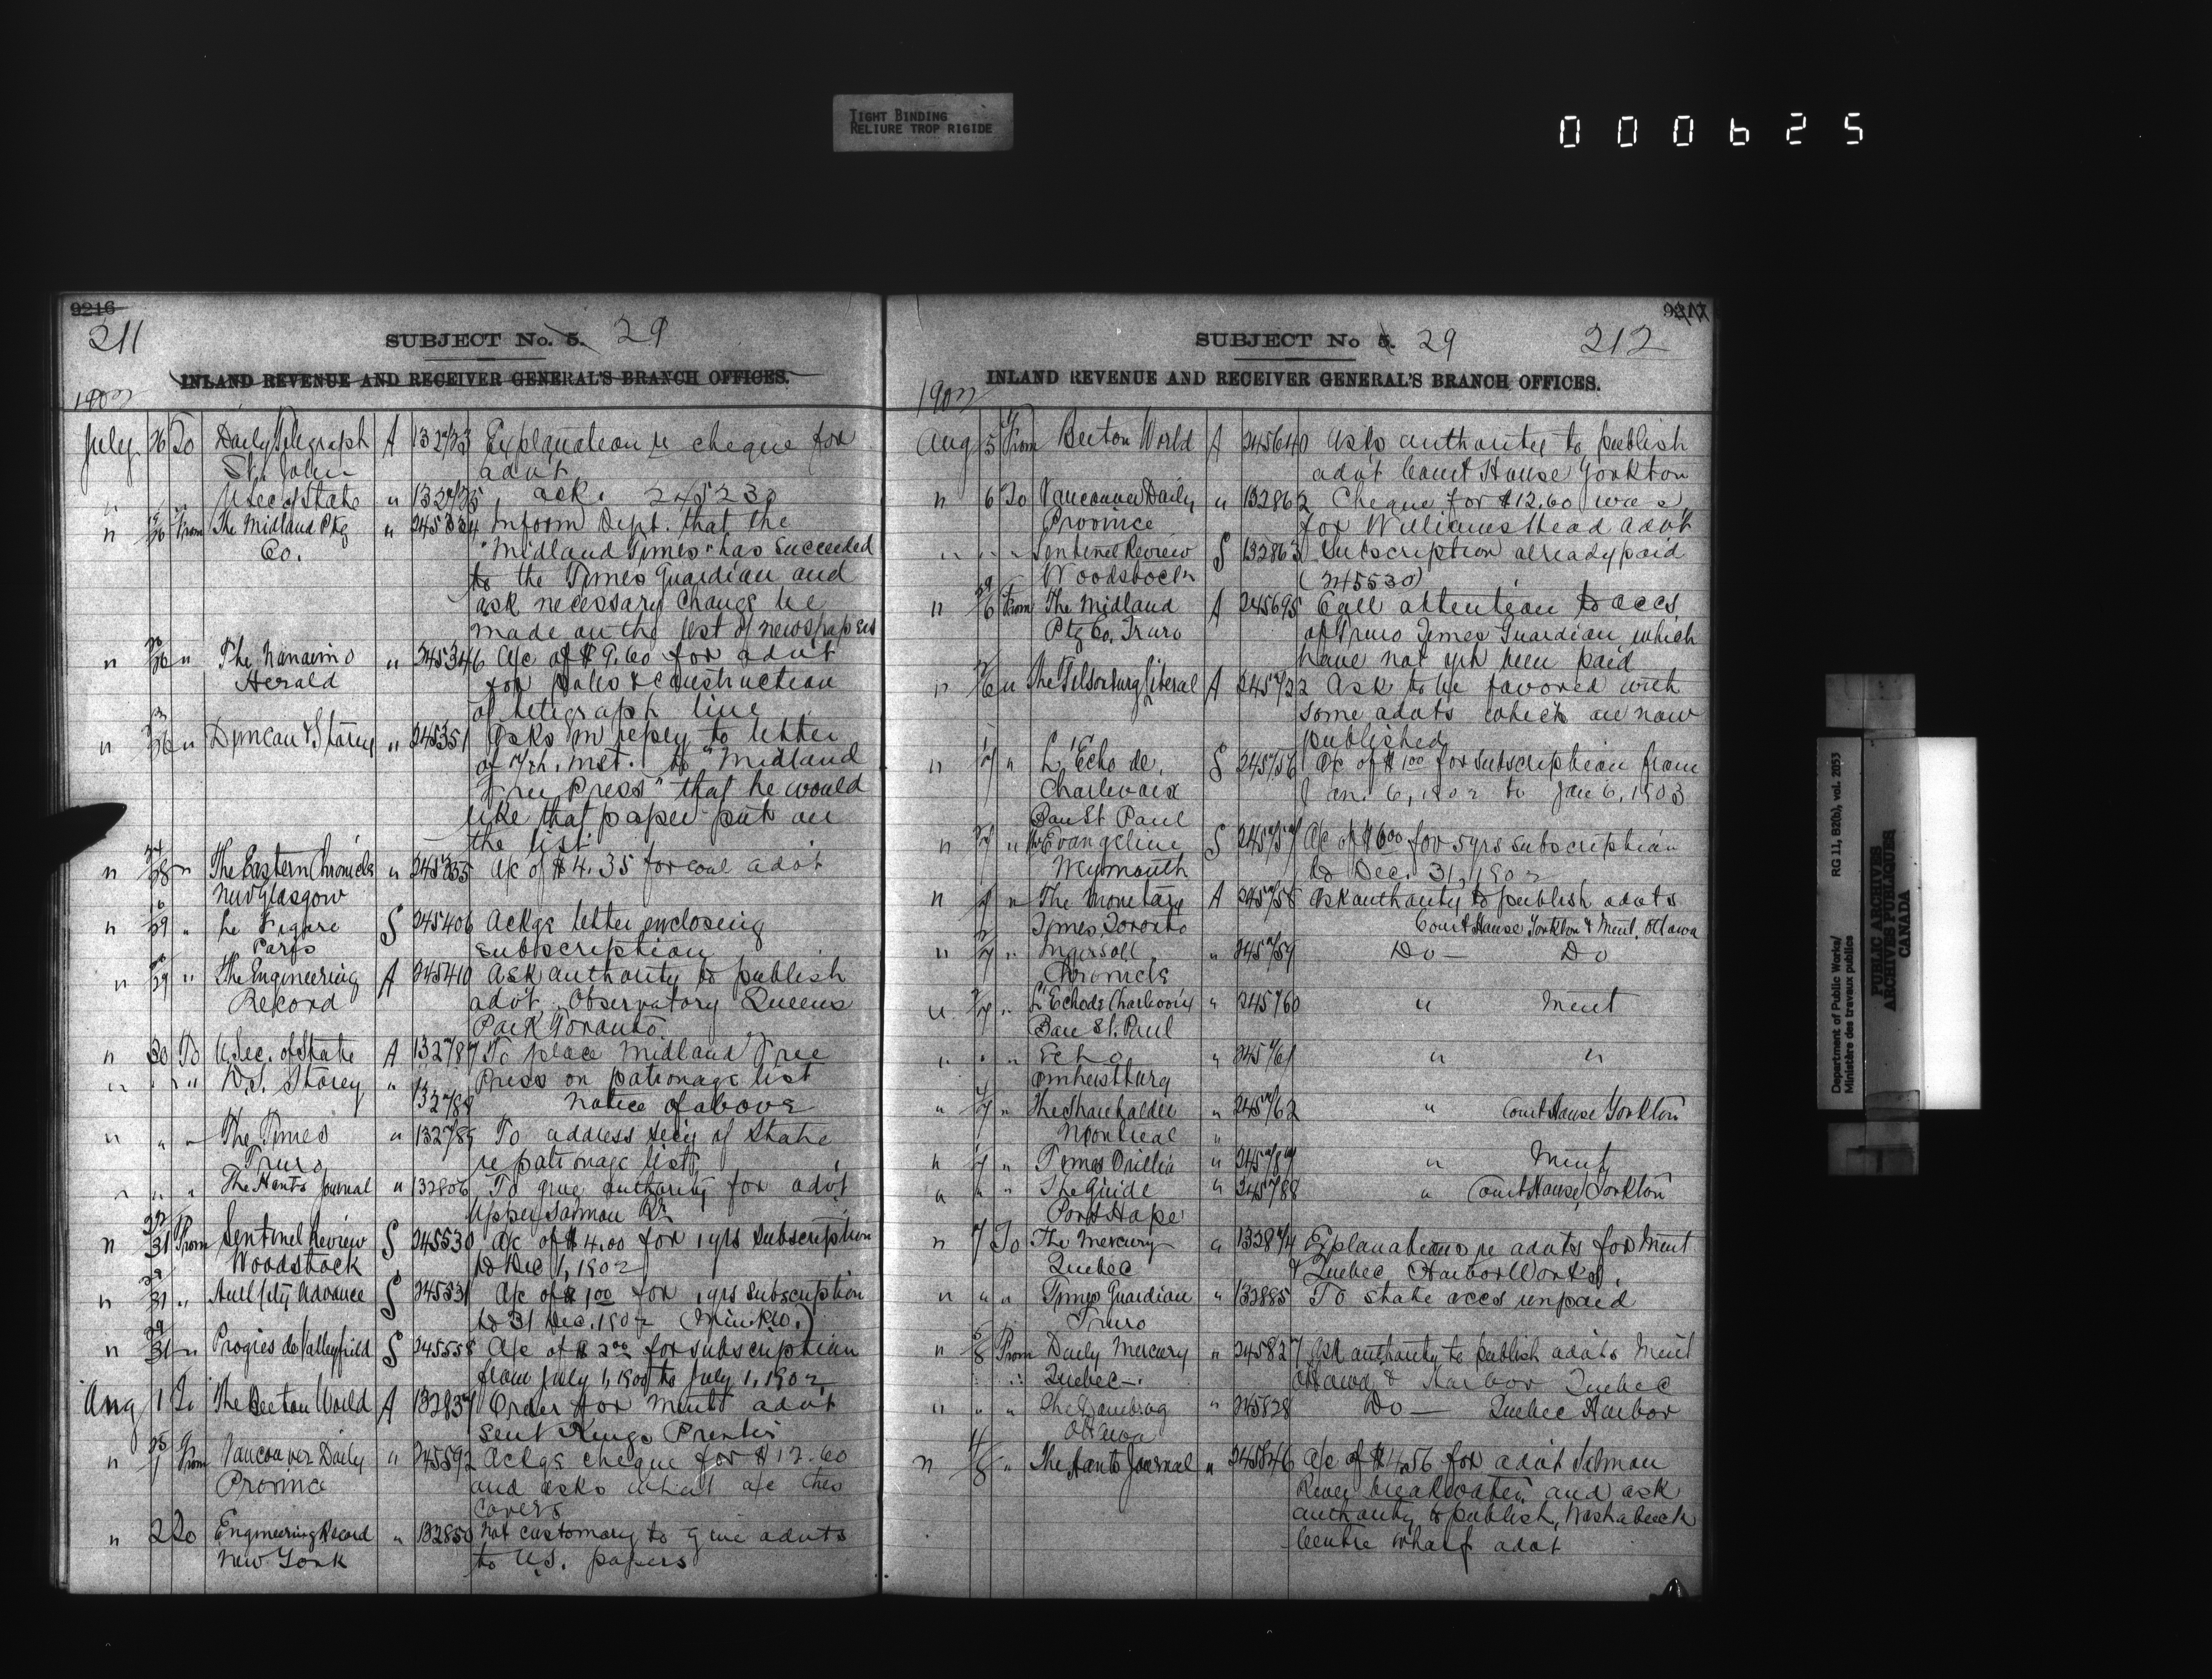 TIGHT BINDING
RELIURE TROP RIGIDE
000625
9216
211
SUBJECT No. 5. 29
INLAND REVENUE AND RECEIVER GENERAL'S BRANCH OFFICES.
1902
July 26 To Daily Telegraph A 132723 Explanation re cheque for
St. John advt
" " U Sec of State " 132725 ack. 245230
" 26 From The Midland Ptg " 245334 Inform Dept. that the
Co. "Midland Times" has succeeded
to the Times Guardian and
ask necessary change be
made on the list of newspapers
" 26 " The Nanaimo " 245346 A/c of $9.60 for advt
Herald for poles & construction
of telegraph line
" 26 " Duncan & Storey " 245351 Asks in reply to letter
of 7th inst. to "Midland
Free Press" that he would
like that paper put on
the list
" 28 " The Eastern Chronicle " 245355 A/c of $4.35 for coal advt
New Glasgow
" 29 " Le Figaro S 245406 Ackgs letter enclosing
Paris subscription
" 29 " The Engineering A 245410 Ask authority to publish
Record advt. Observatory Queens
Park Toronto
" 30 To U. Sec. of State A 132787 To place Midland Free
" " " W.S. Storey " Press on patronage list
132788 Notice of above
" " " The Times " 132789 To address Secy of State
Truro re patronage list
" " " The Hants Journal " 132806 To give authority for advt
Upper Salmon Rr
" 31 From Sentinel Review S 245530 A/c of $4.00 for 1 yrs subscription
Woodstock to Dec 1, 1902
" 31 " Advance S 245531 A/c of $1.00 for 1 yrs subscription
to 31 Dec. 1902
" 31 " Progres de Valleyfield S 245558 A/c of $2.00 for subscription
from July 1, 1900 to July 1, 1902
Aug 1 To The Beeton World A 132837 Order for Mint advt
sent Kings Printer
" 1 From Vancouver Daily " 245592 Ackgs cheque for $12.60
Province and asks what a/c this
covers
" 2 To Engineering Record " 132850 Not customary to give advts
New York to U.S. papers
9217
SUBJECT No 5. 29 212
INLAND REVENUE AND RECEIVER GENERAL'S BRANCH OFFICES.
1902
Aug 5 From Beeton World A 245640 Asks authority to publish
advt Court House Yorkton
" 6 To Vancouver Daily " 132862 Cheque for $12.60 was
Province for Williams Head advt
" " " Sentinel Review S 132863 Subscription already paid
Woodstock (245530)
" 6 From The Midland A 245695 Call attention to accs
Ptg Co. Truro of Truro Times Guardian which
have not yet been paid
" 6 " The Tilsonburg Liberal A 245722 Ask to be favored with
some advts which are now
published
" 7 " L'Echo de S 245756 A/c of $1.00 for subscription from
Charlevoix Jan. 6, 1902 to Jan 6, 1903
Baie St Paul
" 7 " Evangeline S 245757 A/c of $6.00 for 5 yrs subscription
Weymouth to Dec. 31, 1902
" 7 " The Monetary A 245758 Ask authority to publish advts
Times, Toronto Court House Yorkton & Mint, Ottawa
" 7 " Ingersoll " 245759 Do — Do
Chronicle
" 7 " L'Echo de Charlevoix " 245760 " Mint
Baie St. Paul
" " " Echo " 245761 " "
Amherstburg
" 7 " The Shareholder " 245762 " Court House Yorkton
Montreal "
" 7 " Times Orillia " 245787 " Mint
" " " The Guide " 245788 " Court House, Yorkton
Port Hope
" 7 To The Mercury " 132874 Explanations re advts for Mint
Quebec & Quebec Harbor Works.
" " " Times Guardian " 132885 To state accs unpaid
Truro
" 8 From Daily Mercury " 245827 Ask authority to publish advts Mint
Quebec —. Ottawa & Harbor Quebec
" " " The " 245828 Do — Quebec Harbor
Ottawa
" 8 " The Hants Journal " 245846 A/c of $4.56 for advt Salmon
River breakwater and ask
authority to publish, Washabuck
Centre wharf advt
Department of Public Works/ RG 11, B2(b), vol. 2053
Ministère des travaux publics
PUBLIC ARCHIVES
ARCHIVES PUBLIQUES
CANADA